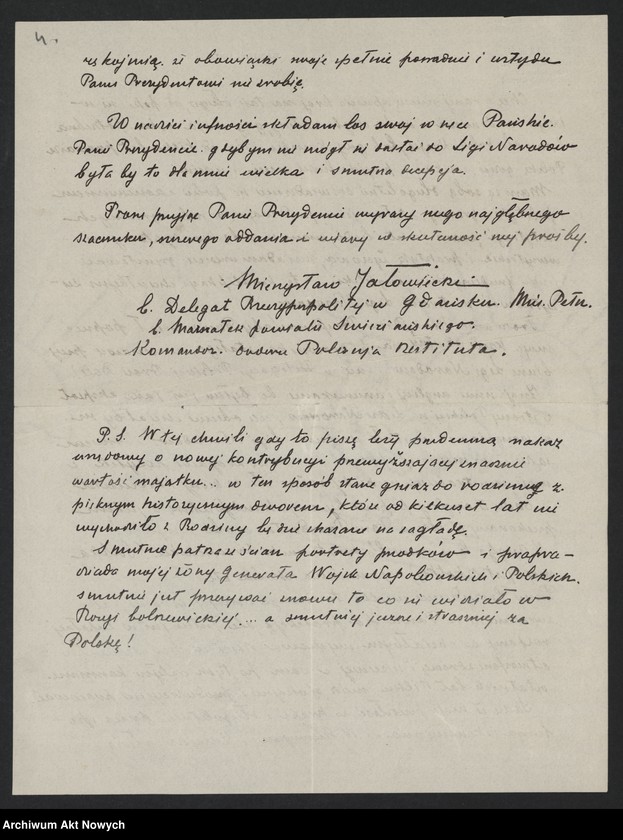 4.
rękojmią, że obowiązki moje spełnię poradnie i wstydu
Panu Prezydentowi nie zrobię.
W nadziei i ufności składam los swój w ręce Pańskie.
Panie Prezydencie. gdybym nie mógł się dostać do Ligi Narodów
była by to dla mnie wielka i smutna decepcja.
Proszę przyjąć Panie Prezydencie wyrazy mego najgłębszego
szacunku, szczerego oddania i wiary w skuteczność mej prośby.
Mieczysław Jałowiecki
b. Delegat Rzeczypospolitej w Gdańsku. Min. Pełn.
b. Marszałek powiatu Święciańskiego.
Komandor orderu Polonia Restituta.
P.S. W tej chwili gdy to piszę leży przedemną nakaz
urzędowy o nowej kontrybucyi przewyższającej znacznie
wartość majątku... w ten sposób stare gniazdo rodzinne z
pięknym historycznym dworem, które od kilkuset lat nie
wychodziło z Rodziny będzie skazane na zagładę.
Smutnie patrzą ze ścian portrety przodków i prapra-
dziada mojej żony Generała Wojsk Napoleońskich i Polskich.
smutnie jest przeżywać znowu to co się widziało w
Rosyi bolszewickiej.... a smutniej jeszcze i straszniej za
Polskę!
Archiwum Akt Nowych